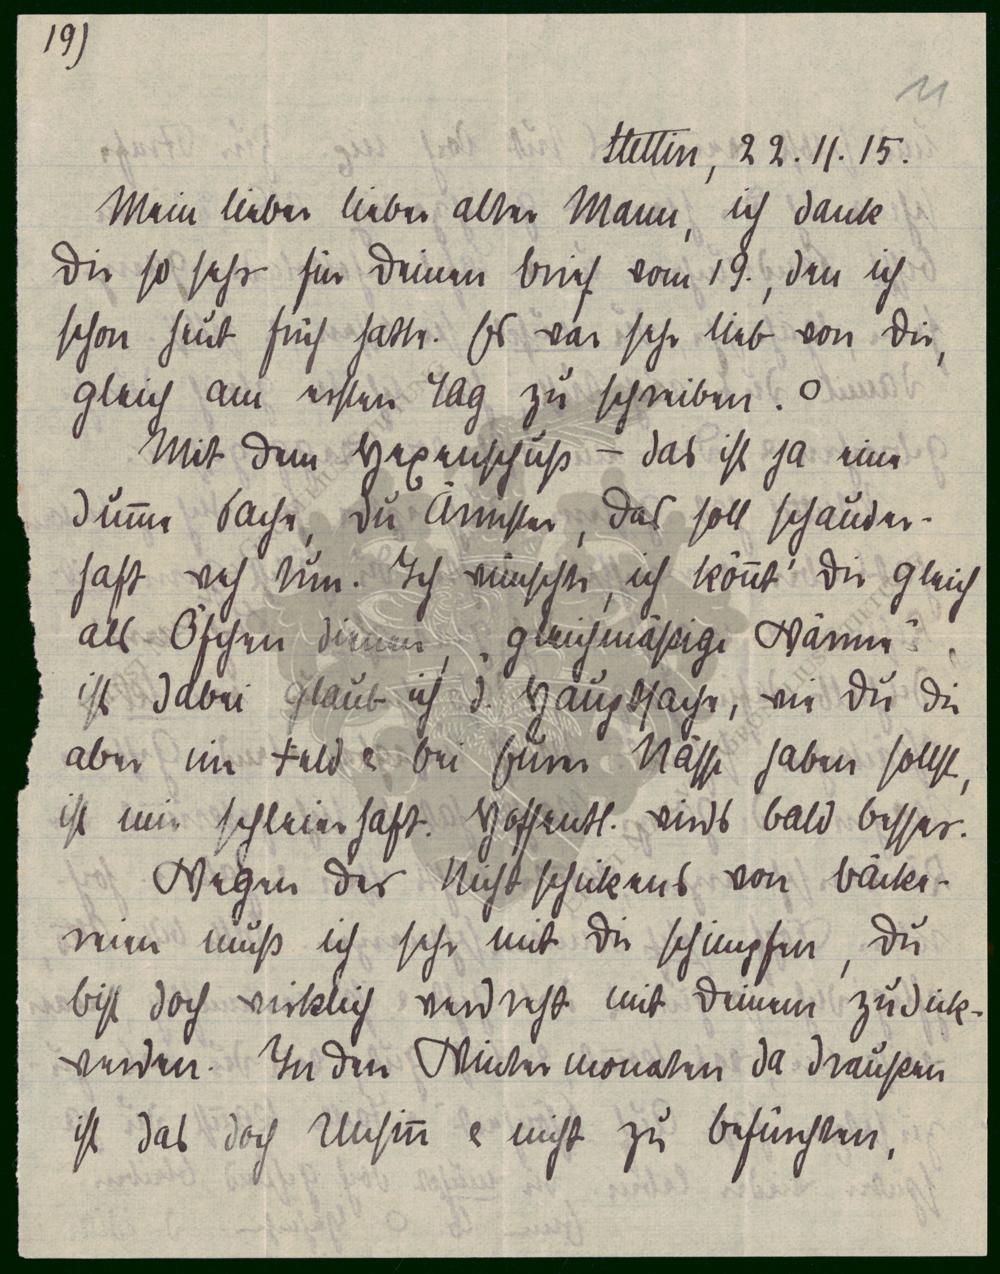 19)
11
Stettin, 22.11.15.
Mein lieber lieber alter Mann, ich dank
Dir so sehr für Deinen Brief vom 19., den ich
schon heut früh hatte. Es war sehr lieb von Dir,
gleich am ersten Tag zu schreiben. O
Mit dem Hexenschuß – das ist ja eine
dum̅e Sache, Du Ärmster, das soll schauder-
haft weh tun. Ich wünschte, ich kön̅t' Dir gleich
als Öfchen dienen, "gleichmäßige Wärme"
ist dabei glaub ich d. Hauptsache, wie Du die
aber im Feld & bei Eurer Nässe haben sollst,
ist mir schleierhaft. Hoffentl. wirds bald besser.
Wegen des Nichtschickens von Bäcke-
reien muß ich sehr mit Dir schimpfen, Du
bist doch wirklich verdreht mit Deinem zudick-
werden. In den Wintermonaten da draußen
ist das doch Unsin̅ & nicht zu befürchten,